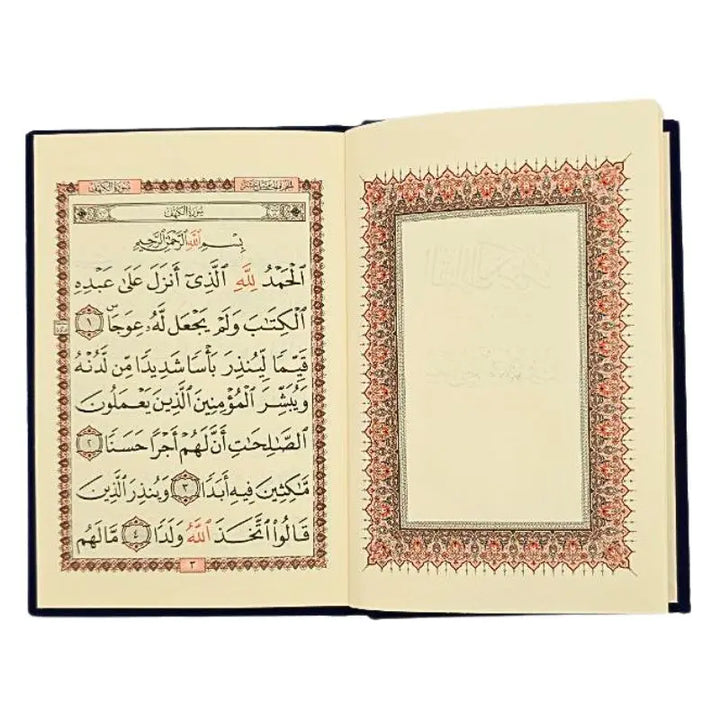 الجزء الخامس عشر
سورة الكهف
سورة الكهف
بِسْمِ اللَّهِ الرَّحْمَٰنِ الرَّحِيمِ
الْحَمْدُ لِلَّهِ الَّذِي أَنزَلَ عَلَىٰ عَبْدِهِ
الْكِتَابَ وَلَمْ يَجْعَل لَّهُ عِوَجَاۜ ١
قَيِّمًا لِّيُنذِرَ بَأْسًا شَدِيدًا مِّن لَّدُنْهُ
وَيُبَشِّرَ الْمُؤْمِنِينَ الَّذِينَ يَعْمَلُونَ
الصَّالِحَاتِ أَنَّ لَهُمْ أَجْرًا حَسَنًا ٢
مَّاكِثِينَ فِيهِ أَبَدًا ٣ وَيُنذِرَ الَّذِينَ
قَالُوا اتَّخَذَ اللَّهُ وَلَدًا ٤ مَّا لَهُم
٣